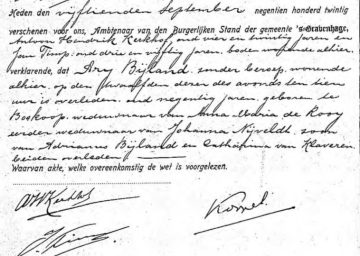 Heden den vijftienden September negentien honderd twintig
verschenen voor ons, Ambtenaar van den Burgerlijken Stand der gemeente 's-Gravenhage,
Antoon Hendrik Kerkhof oud vier en twintig jaren en
Jan Timp, oud drie en vijftig jaren, boden wonende alhier,
verklarende, dat Ary Bijland, zonder beroep, wonende
alhier, op den twaalfden dezer des avonds ten tien
ure is overleden, oud negentig jaren, geboren te
Boskoop, weduwnaar van Anna Maria de Rooy
eerder weduwnaar van Johanna Nijveldt, zoon
van Adrianus Bijland en Catharina van Klaveren
beiden overleden
Waarvan akte, welke overeenkomstig de wet is voorgelezen.
AHKerkhof